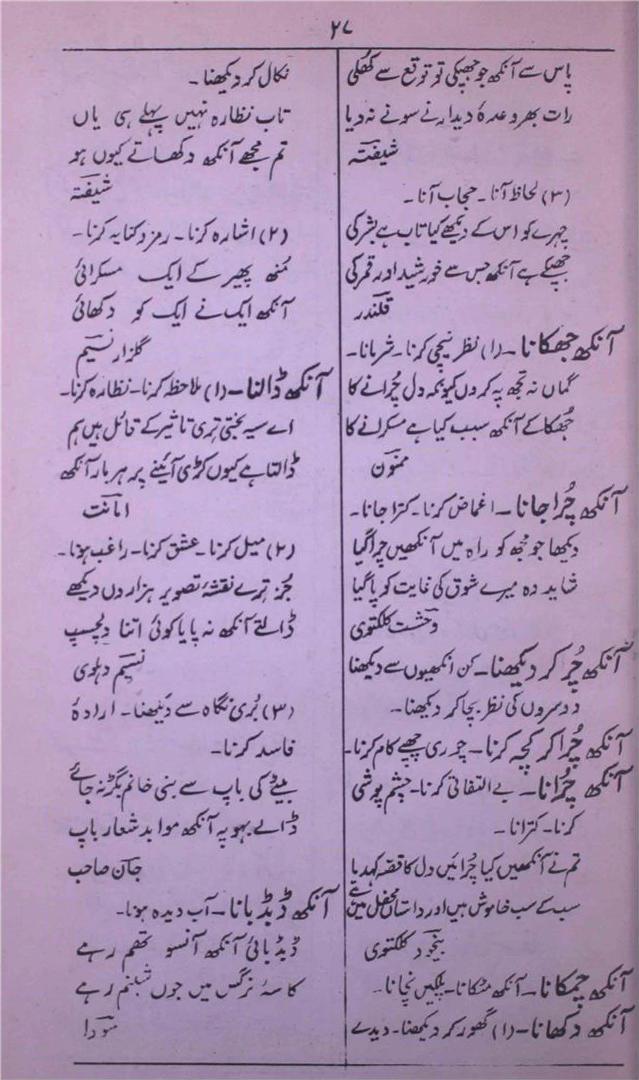 ۲۷
پاس سے آنکھ جو جھپکی تو توقع سے کھلی
رات بھر وعدۂ دیدار نے سونے نہ دیا
شیفتہ
(۳) لحاظ آنا۔ حجاب آنا۔
چہرے کو اس کے دیکھے کیا تاب ہے بشر کی
جھپکے ہے آنکھ جس سے خورشید اور قمر کی
قلندر
آنکھ جھکانا۔ (۱) نظر نیچی کرنا۔ شرمانا۔
گماں نہ تجھ پہ کروں کیونکہ دل چرانے کا
جھکا کے آنکھ سبب کیا ہے مسکرانے کا
ممنون
آنکھ چُرا جانا۔ اغماض کرنا۔ کترا جانا۔
دیکھا جو مجھ کو راہ میں آنکھیں چرا گیا
شاید وہ میرے شوق کی غایت کو پا گیا
وحشت کلکتوی
آنکھ چُرا کر دیکھنا۔ کن انکھیوں سے دیکھنا
دوسروں کی نظر بچا کر دیکھنا۔
آنکھ چُرا کر کچھ کرنا۔ چوری چھپے کام کرنا۔
آنکھ چُرانا۔ بے التفاتی کرنا۔ چشم پوشی
کرنا۔ کترانا۔
تم نے آنکھیں کیا چُرائیں دل کا قصّہ کہدیا
سب کے سب خاموش ہیں اور داستاں محفل میں ہے
بیخود کلکتوی
آنکھ چمکانا۔ آنکھ مٹکانا۔ پلکیں نچانا۔
آنکھ دکھانا۔ (۱) گھور کر دیکھنا۔ دیدے
نکال کر دیکھنا۔
تاب نظارہ نہیں پہلے ہی یاں
تم مجھے آنکھ دکھاتے کیوں ہو
شیفتہ
(۲) اشارہ کرنا۔ رمز و کنایہ کرنا۔
منھ پھیر کے ایک مسکرائی
آنکھ ایک نے ایک کو دکھائی
گلزار نسیم
آنکھ ڈالنا۔ (۱) ملاحظہ کرنا۔ نظارہ کرنا۔
اے سیہ بختی تری تاثیر کے قائل ہیں ہم
ڈالتا ہے کیوں کڑی آئینے پر ہر بار آنکھ
امانت
(۲) میل کرنا۔ عشق کرنا۔ راغب ہونا۔
جُز ترے نقشۂ تصویر ہزاروں دیکھے
ڈالئے آنکھ نہ پایا کوئی اتنا دلچسپ
نسیم دہلوی
(۳) بُری نگاہ سے دیکھنا۔ ارادۂ
فاسد کرنا۔
بیٹے کی باپ سے بنی خانم بگڑ نہ جائے
ڈالے بہو پہ آنکھ موا بد شعار باپ
جان صاحب
آنکھ ڈبڈبانا۔ آب دیدہ ہونا۔
ڈبڈبائی آنکھ آنسو تھم رہے
کاسۂ نرگس میں جوں شبنم رہے
سودا